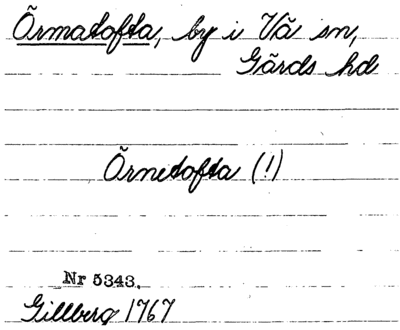 Örmatofta, by i Vä sn,
Gärds hd
Örnetofta (!)
Nr 5343.
Gillberg 1767